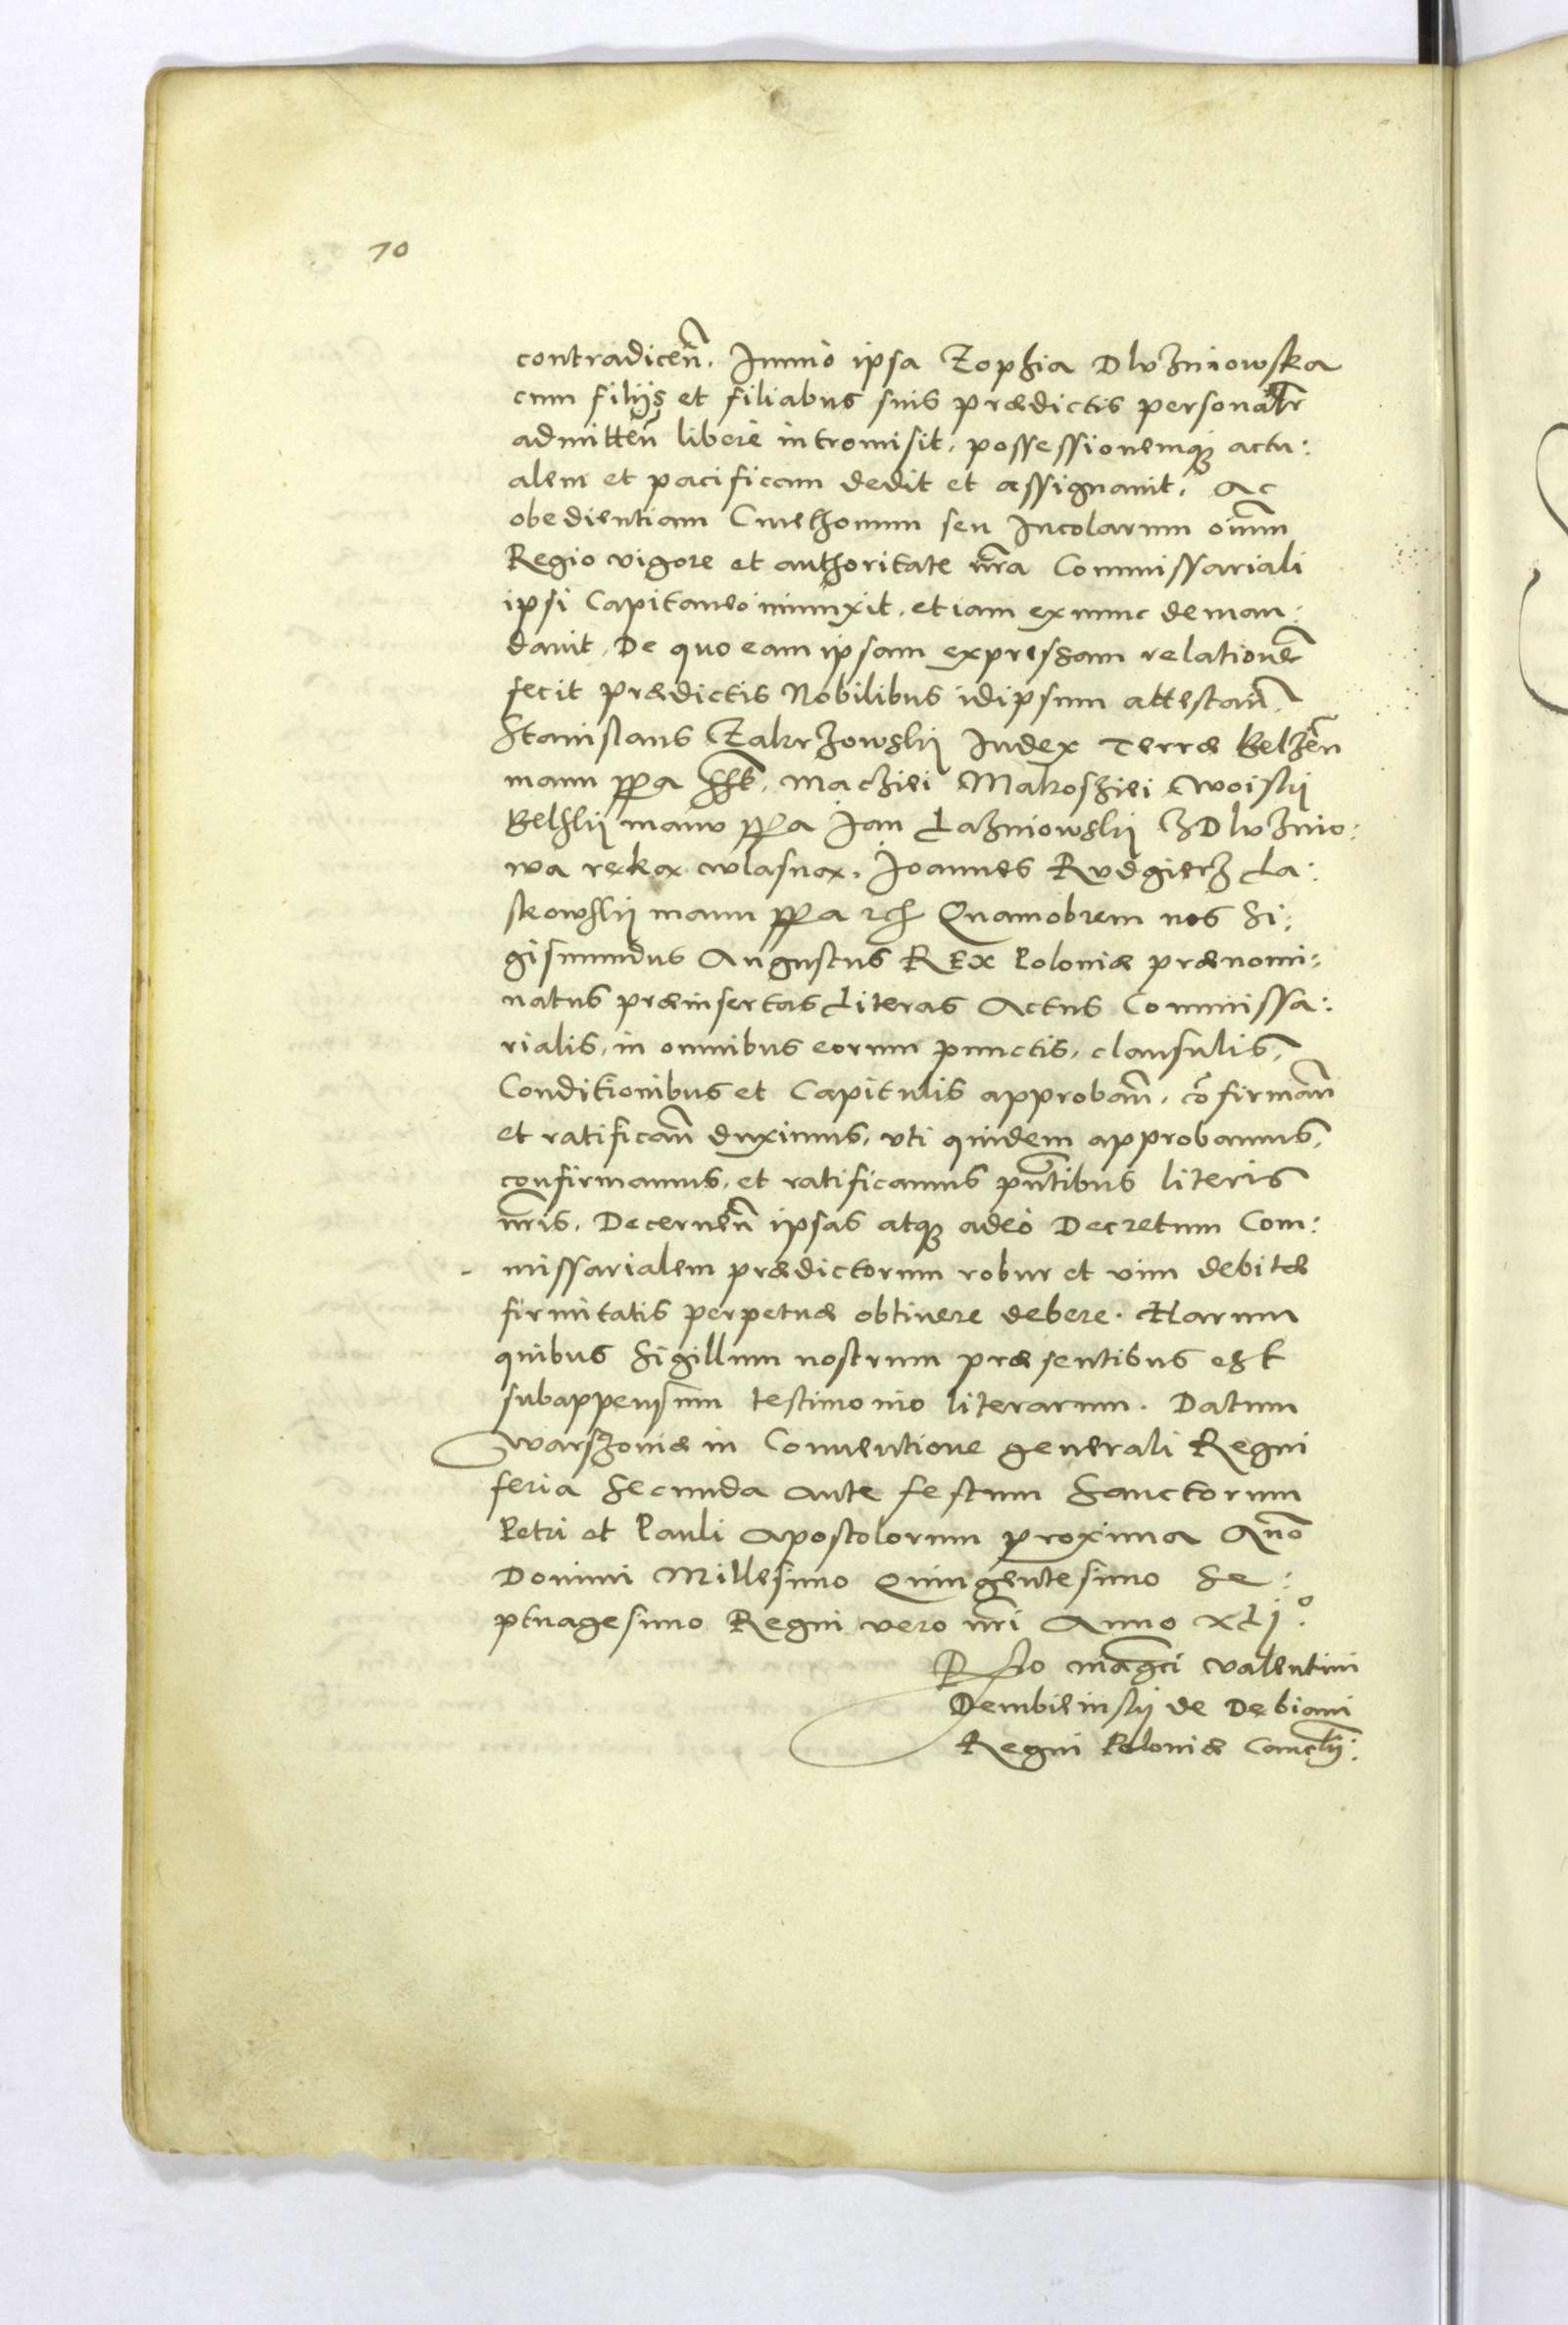 70
contradiceñ. Immo ipsa Zophia Dlvzniowska
cum filijs et filiabus suis prædictis personalr
admitteñ libere intromisit, possessionemq́ʒ actu:
alem et pacificam dedit et assignauit, Ac
obedientiam Cmethonum seu Incolarum oium
Regio vigore et authoritate nra Commissariali
ipsi Capitaneo iniunxit, etiam exnunc deman:
dauit, De quo eam ipsam expressam relatione
fecit prædictis Nobilibus idipsum attestañ.
Stanislaus Zakrzowskij Iudex Terræ Belzeñ
manu ppa sst. Macziei Makosziei Woiskij
Belskij manu ppa Jan Łazniowskij z Dlvznio:
wa ręką własną. Joannes Rvdgierz Ła:
skowskij manu ppa rch Quamobrem nos Si:
gismundus Augustus REX Poloniæ prænomi:
natus præinsertas Literas Actus Commissa:
rialis, in omnibus eorum punctis, clausulis,
Conditionibus et Capitulis approbañ, cõfirmañ
et ratificañ duximus, vti quidem approbamus,
confirmamus, et ratificamus pntibus literis
nris. Decerneñ ipsas atqʒ adeo Decretum Com:
missarialem prædictorum robur et vim debitæ
firmitatis perpetuæ obtinere debere. Harum
quibus Sigillum nostrum præsentibus est
subappensum testimonio literarum. Datum
Warszoviæ in Conuentione generali Regni
feria Secunda ante festum Sanctorum
Petri et Pauli Apostolorum proxima Año
Domini Millesimo Quingentesimo Se:
ptuagesimo Regni vero nri Anno XLIº.
Rſſio magci Valentini
Dembieinskij de Dębiani
Regni Poloniæ Cancellrij: